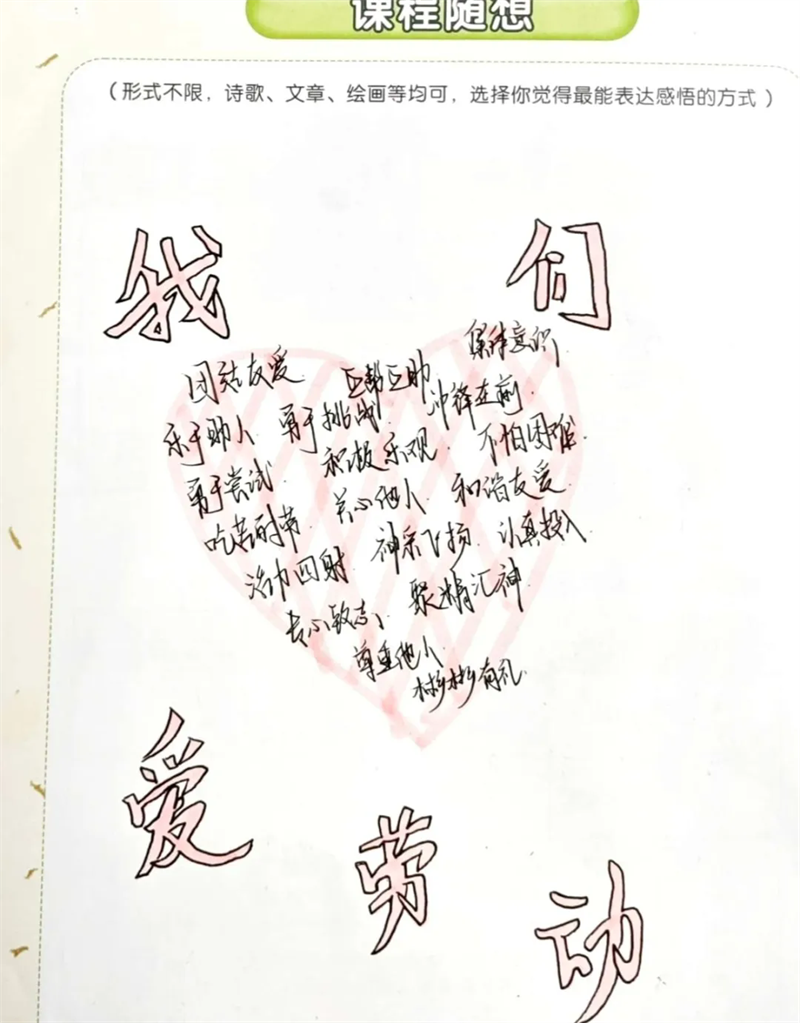 课程随想
（形式不限，诗歌、文章、绘画等均可，选择你觉得最能表达感悟的方式）
我 们
团结友爱 互帮互助 集体意识
乐于助人 勇于挑战 冲锋在前
勇于尝试 积极乐观 不怕困难
吃苦耐劳 关心他人 和谐友爱
活力四射 神采飞扬 认真投入
专心致志、聚精汇神
尊重他人
彬彬有礼
爱 劳 动